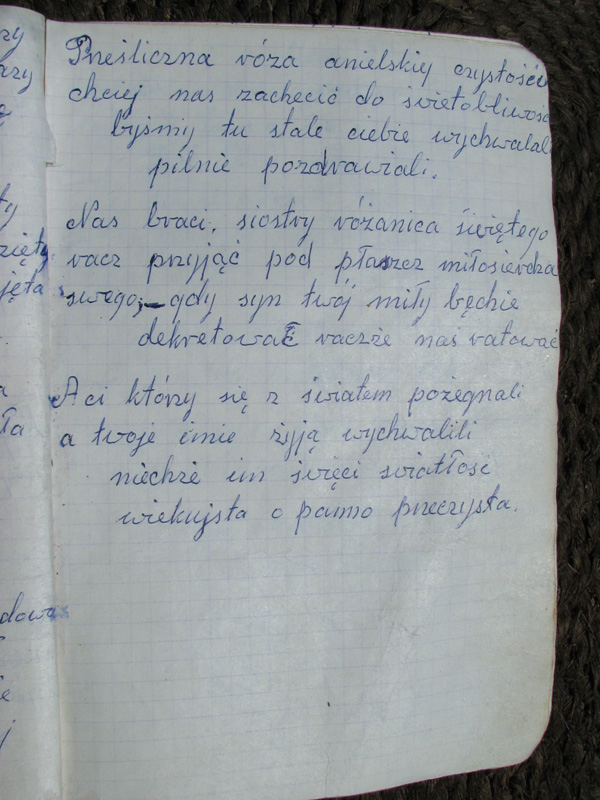 Prześliczna róża anielskiej czystości
chciej nas zachecić do świetobliwość
byśmy tu stale ciebie wychwalali
pilnie pozdrawiali.
Nas braci, siostry różanica świętego
racz przyjąć pod płaszcz miłosierdza
swego, gdy syn twój miły będzie
dekretować raczże nas ratować
A ci którzy się z światem pożegnali
a twoje imie żyją wychwalili
niechże im święci światłość
wiekujsta o panno przeczysta.